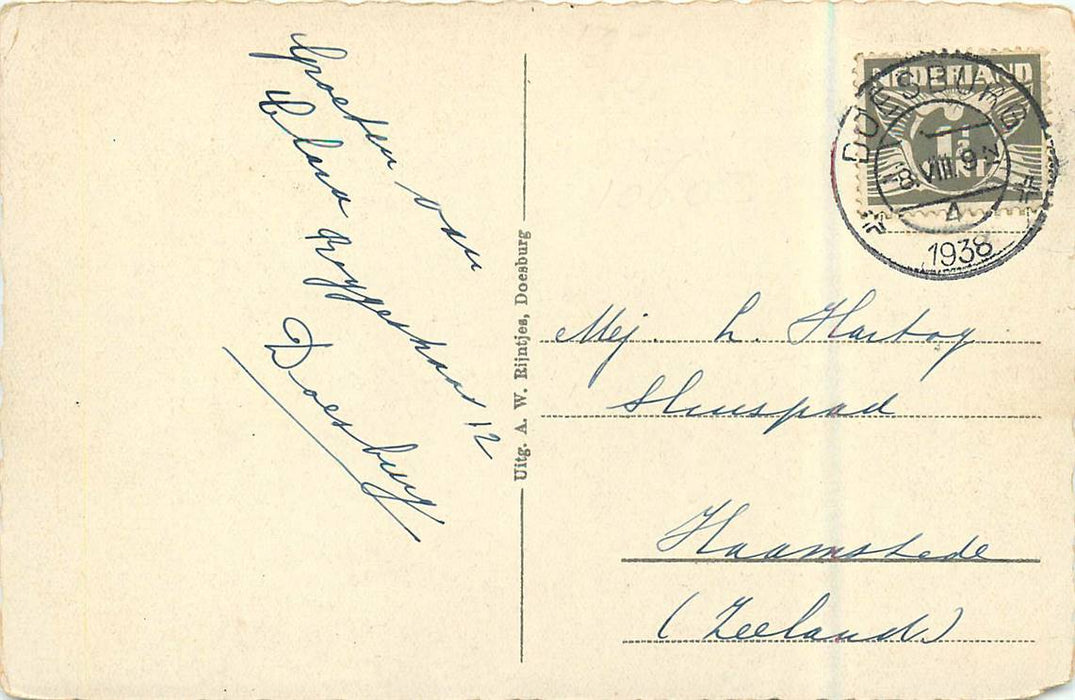 Groeten van
Clara
12
Doesburg
Uitg. A. W. Rijntjes, Doesburg
NEDERLAND
1½
CT
DOESBURG
18.VIII.9
A
1938
Mej. L. Hartog
Sluispad
Haamstede
(Zeeland)